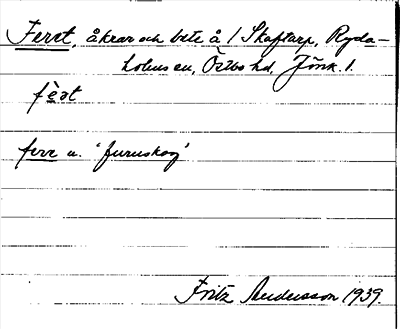 Feret, åkrar och bete å 1 Skaftarp, Ryda-
holms sn, Östbo hd, Jönk. l.
fèrt
fere n. 'furuskog'
Fritz Andersson 1939.